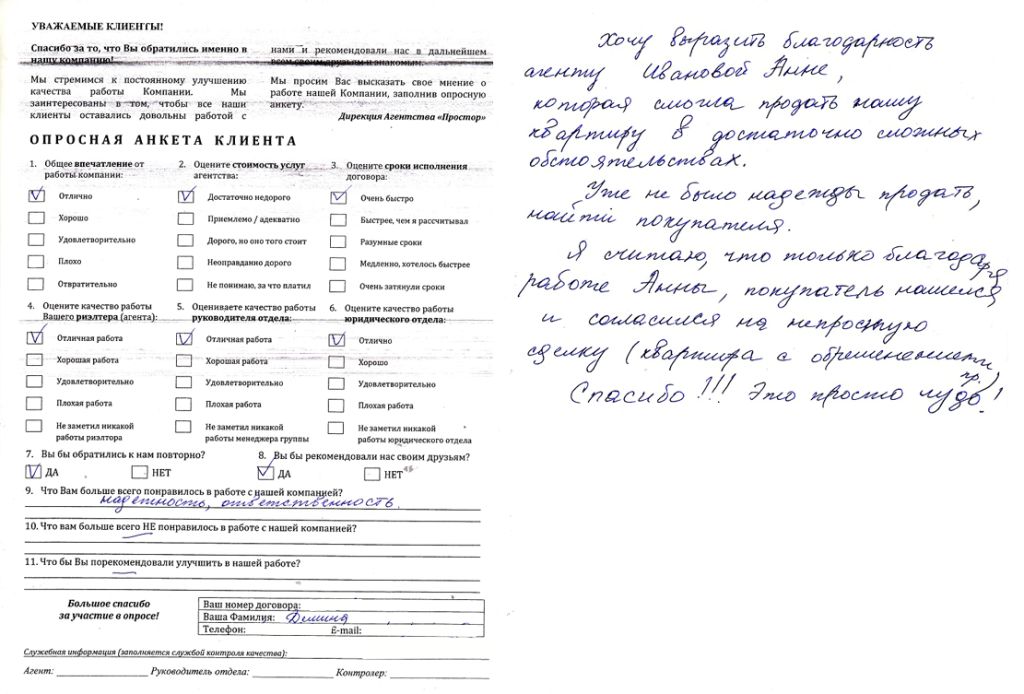 УВАЖАЕМЫЕ КЛИЕНТЫ!
Спасибо за то, что Вы обратились именно в
нашу компанию!
Мы стремимся к постоянному улучшению
качества работы Компании. Мы
заинтересованы в том, чтобы все наши
клиенты оставались довольны работой с
нами и рекомендовали нас в дальнейшем
всем своим друзьям и знакомым.
Мы просим Вас высказать свое мнение о
работе нашей Компании, заполнив опросную
анкету.
Дирекция Агентства «Простор»
ОПРОСНАЯ АНКЕТА КЛИЕНТА
1. Общее впечатление от
работы компании:
Отлично
Хорошо
Удовлетворительно
Плохо
Отвратительно
2. Оцените стоимость услуг
агентства:
Достаточно недорого
Приемлемо / адекватно
Дорого, но оно того стоит
Неоправданно дорого
Не понимаю, за что платил
3. Оцените сроки исполнения
договора:
Очень быстро
Быстрее, чем я рассчитывал
Разумные сроки
Медленно, хотелось быстрее
Очень затянули сроки
4. Оцените качество работы
Вашего риэлтера (агента):
Отличная работа
Хорошая работа
Удовлетворительно
Плохая работа
Не заметил никакой
работы риэлтора
5. Оцениваете качество работы
руководителя отдела:
Отличная работа
Хорошая работа
Удовлетворительно
Плохая работа
Не заметил никакой
работы менеджера группы
6. Оцените качество работы
юридического отдела:
Отлично
Хорошо
Удовлетворительно
Плохая работа
Не заметил никакой
работы юридического отдела
7. Вы бы обратились к нам повторно?
ДА НЕТ
8. Вы бы рекомендовали нас своим друзьям?
ДА НЕТ
9. Что Вам больше всего понравилось в работе с нашей компанией?
надежность, ответственность.
10. Что вам больше всего НЕ понравилось в работе с нашей компанией?
11. Что бы Вы порекомендовали улучшить в нашей работе?
Большое спасибо
за участие в опросе!
Ваш номер договора:
Ваша Фамилия: Демина
Телефон: E-mail:
Служебная информация (заполняется службой контроля качества):
Агент: Руководитель отдела: Контролер:
Хочу выразить благодарность
агенту Ивановой Анне,
которая смогла продать нашу
квартиру в достаточно сложных
обстоятельствах.
Уже не было надежды продать,
найти покупателя.
Я считаю, что только благодаря
работе Анны, покупатель нашелся
и согласился на непростую
сделку (квартира с обременением
пр.)
Спасибо!!! Это просто чудо!